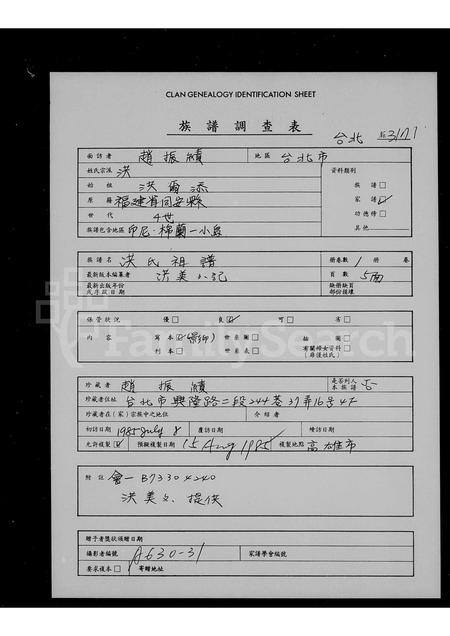 CLAN GENEALOGY IDENTIFICATION SHEET
族譜調查表
台北
面訪者 趙振績 地區 台北市
姓氏宗派 洪 資料類別
始祖 洪爾添 族譜 □
原籍 福建省同安縣 家譜 ☑
世代 4世 功德榜 □
族譜包含地區 印尼·棉蘭一小島 其他
族譜名 洪氏祖譜 冊卷數 1 冊 卷
最新版本編纂者 洪美 記 頁數 5面
最新出版年份 缺掉缺頁
或序跋日期 部份損壞
保管狀況 優 □ 良 ☑ 可 □ 劣 □
內容 寫本 ☑ 世系圖 □ 插圖 □
刊本 □ 世系表 □ 有關婦女資料 □
(非僅姓氏)
珍藏者 趙振績 是否列入本族譜 否
珍藏者住址 台北市興隆路二段244巷37弄16号4F
珍藏者在(家)宗族中之地位 介紹者
初訪日期 1985 July 8 覆訪日期 續訪日期
允許複製 ☑ 預擬複製日期 15 Aug 1985 複製地點 高雄市
附註 會一 B73304240
洪美 提供
贈予者獎狀頒贈日期
攝影者編號 A630-31 家譜學會編號
要求複本 □ 寄贈地址
FamilySearch